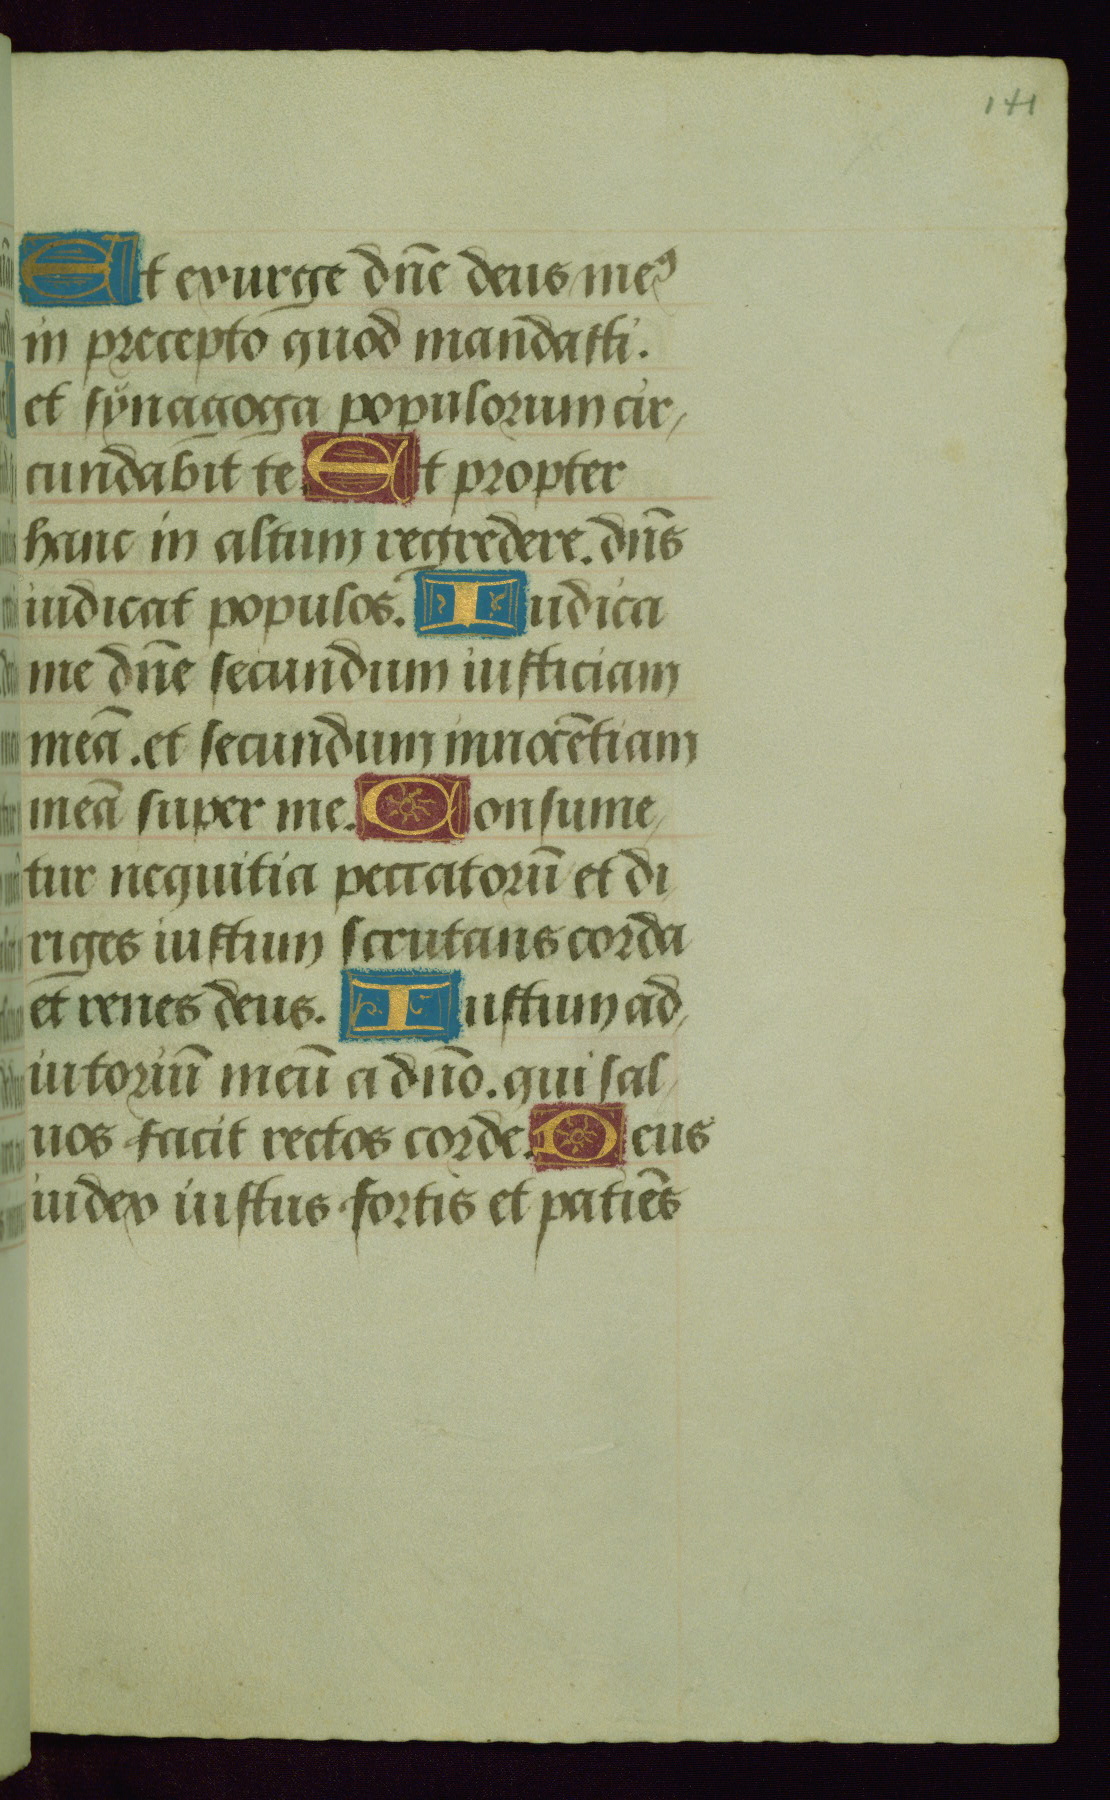 141
Et exurge dn̄e deus meꝰ
in precepto quod mandasti.
et sÿnagoga populorum cir-
cundabit te. Et propter
hanc in altum regredere. dn̄s
iudicat populos. Iudica
me dn̄e secundum iusticiam
meā. et secundum innocētiam
meā super me. Consume-
tur nequitia peccatorū et di
riges iustum scrutans corda
et renes deus. Iustum ad-
iutoriū meū a dn̄o. qui sal-
uos facit rectos corde. Deus
iudex iustus fortis et patiēs